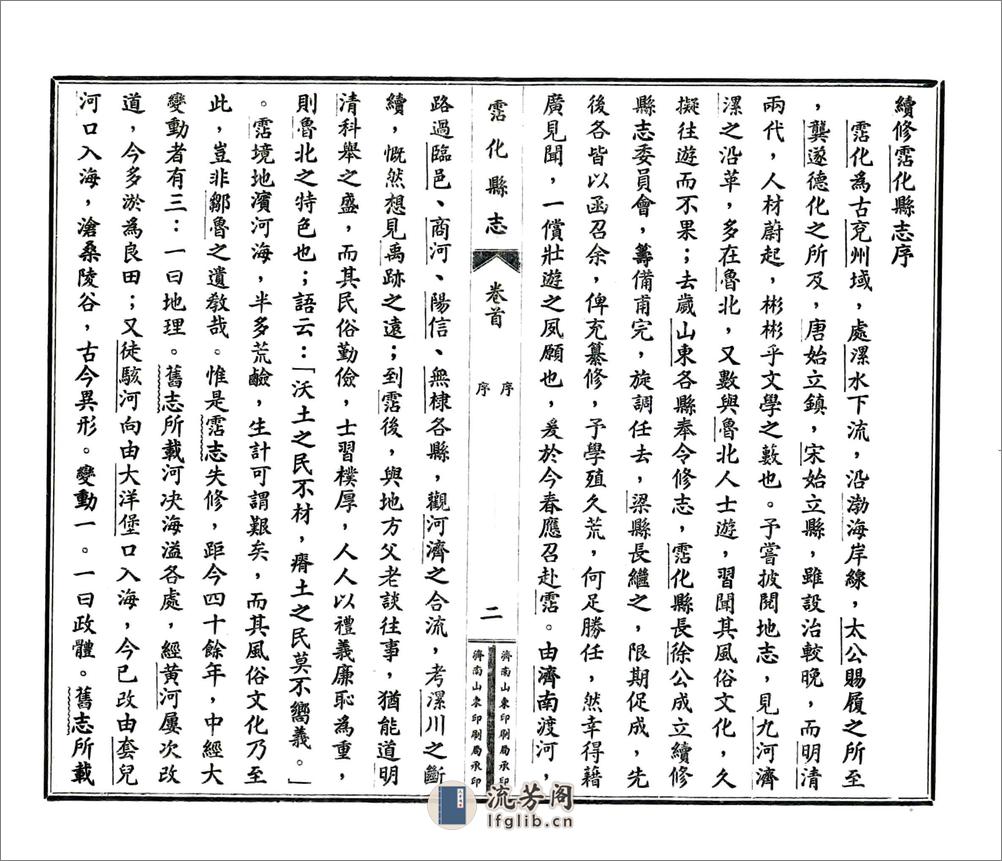 續修霑化縣志序
霑化為古兗州域，處漯水下流，沿渤海岸線，太公賜履之所至
，龔遂德化之所及，唐始立鎮，宋始立縣，雖設治較晚，而明清
兩代，人材蔚起，彬彬乎文學之藪也。予嘗披閱地志，見九河濟
漯之沿革，多在魯北，又數與魯北人士遊，習聞其風俗文化，久
擬往遊而不果；去歲山東各縣奉令修志，霑化縣長徐公成立續修
縣志委員會，籌備甫完，旋調任去，梁縣長繼之，限期促成，先
後各皆以函召余，俾充纂修，予學殖久荒，何足勝任，然幸得藉
廣見聞，一償壯遊之夙願也，爰於今春應召赴霑。由濟南渡河，
霑化縣志
卷首
序
序
二
濟南山東印刷局承印
濟南山東印刷局承印
路過臨邑、商河、陽信、無棣各縣，觀河濟之合流，考漯川之斷
續，慨然想見禹跡之遠；到霑後，與地方父老談往事，猶能道明
清科舉之盛，而其民俗勤儉，士習樸厚，人人以禮義廉恥為重，
則魯北之特色也；語云：「沃土之民不材，瘠土之民莫不嚮義。」
。霑境地濱河海，半多荒鹼，生計可謂艱矣，而其風俗文化乃至
此，豈非鄒魯之遺教哉。惟是霑志失修，距今四十餘年，中經大
變動者有三：一曰地理。舊志所載河决海溢各處，經黃河屢次改
道，今多淤為良田；又徒駭河向由大洋堡口入海，今已改由套兒
河口入海，滄桑陵谷，古今異形。變動一。一曰政體。舊志所載
流芳阁
lfglib.cn